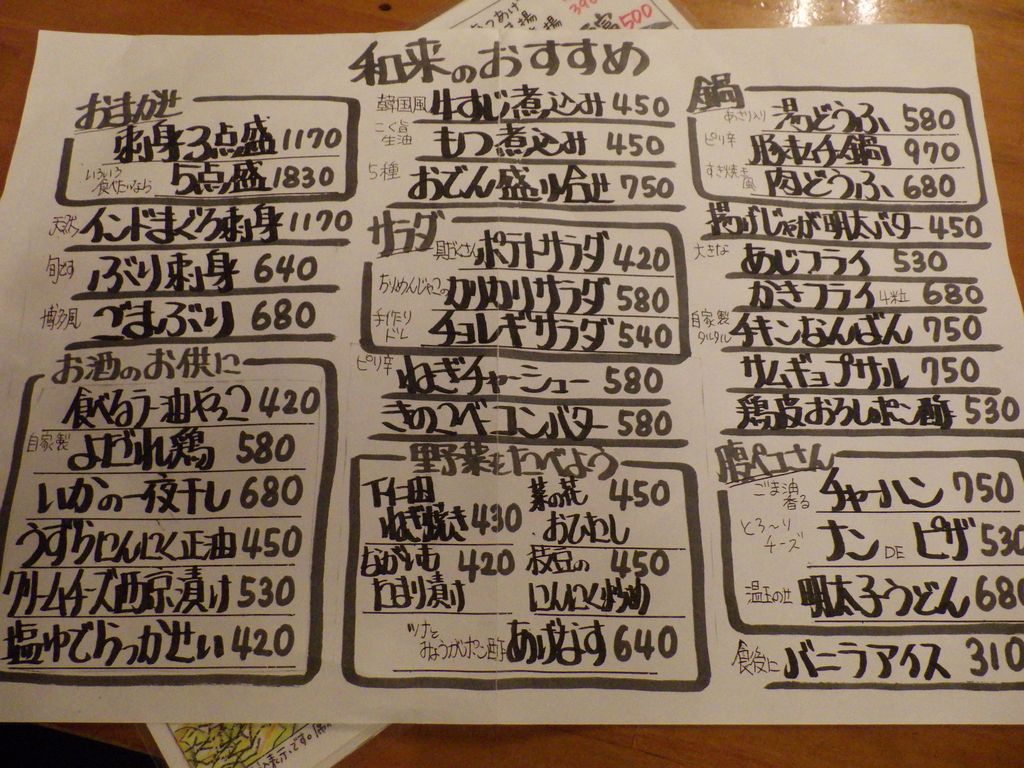 和来のおすすめ
おまかせ
刺身3点盛 1170
いろいろ食べたいなら 5点盛 1830
天然 インドまぐろ刺身 1170
旬です ぶり刺身 640
博多風 ごまぶり 680
お酒のお供に
食べるラー油やっこ 420
自家製 よだれ鶏 580
いかの一夜干し 680
うずらにんにく正油 450
クリームチーズ西京漬け 530
塩ゆでらっかせい 420
韓国風 牛すじ煮込み 450
こく旨生油 もつ煮込み 450
5種 おでん盛り合せ 750
サラダ
具だくさん ポテトサラダ 420
ちりめんじゃこの カリカリサラダ 580
手作りドレ チョレギサラダ 540
ピリ辛 ねぎチャーシュー 580
きのこベーコンバター 580
野菜をたべよう
下仁田ねぎ焼き 430
菜の花おひたし 450
ながいもたまり漬け 420
枝豆のにんにく炒め 450
ツナとみょうがポン酢 あげなす 640
鍋
あさり入り 湯どうふ 580
ピリ辛 豚キムチ鍋 970
すき焼き風 肉どうふ 680
揚げじゃが明太バター 450
大きな あじフライ 530
かきフライ 4粒 680
自家製タルタル チキンなんばん 750
サムギョプサル 750
鶏皮おろしポン酢 530
腹ペコさん
ごま油香る チャーハン 750
とろ〜りチーズ ナン DE ピザ 530
温玉のせ 明太子うどん 680
食後に バニラアイス 310
500
表示です。